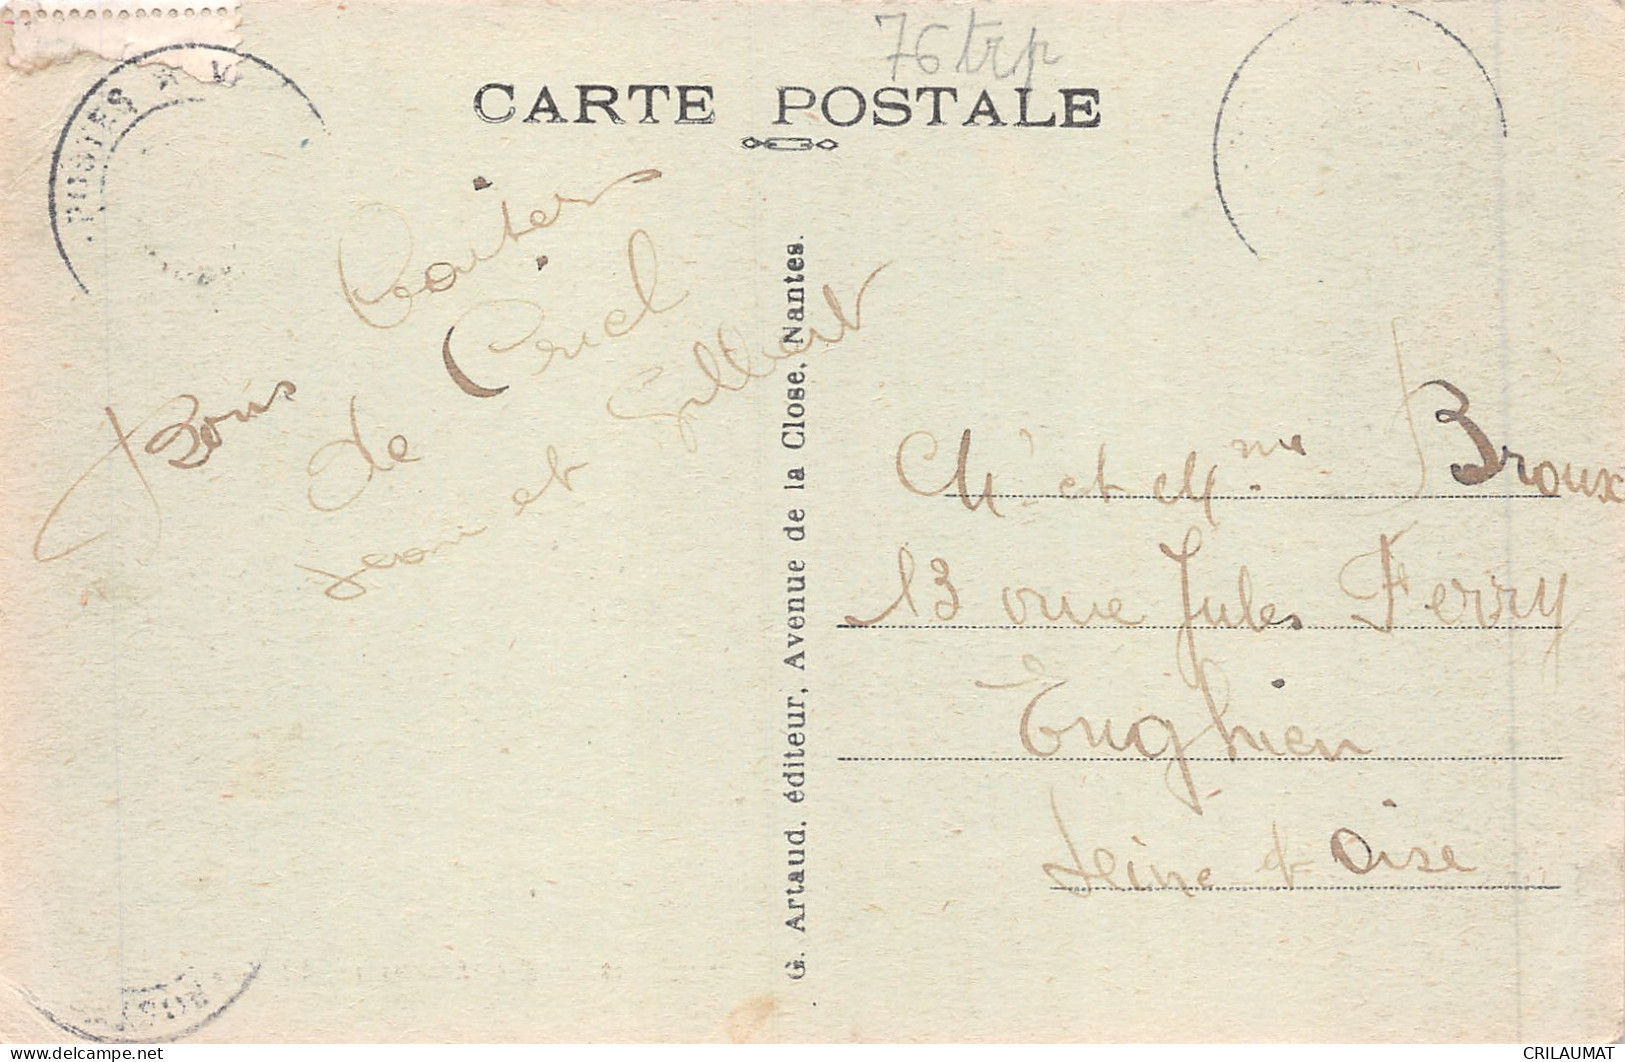 76 trp
CARTE POSTALE
POSTES
Bons Baisers
de
Jeanine et Gilbert
G. Artaud, éditeur, Avenue de la Close, Nantes.
Mr et Mme Broux
13 rue Jules Ferry
Enghien
Seine et Oise
www.delcampe.net
CRILAUMAT